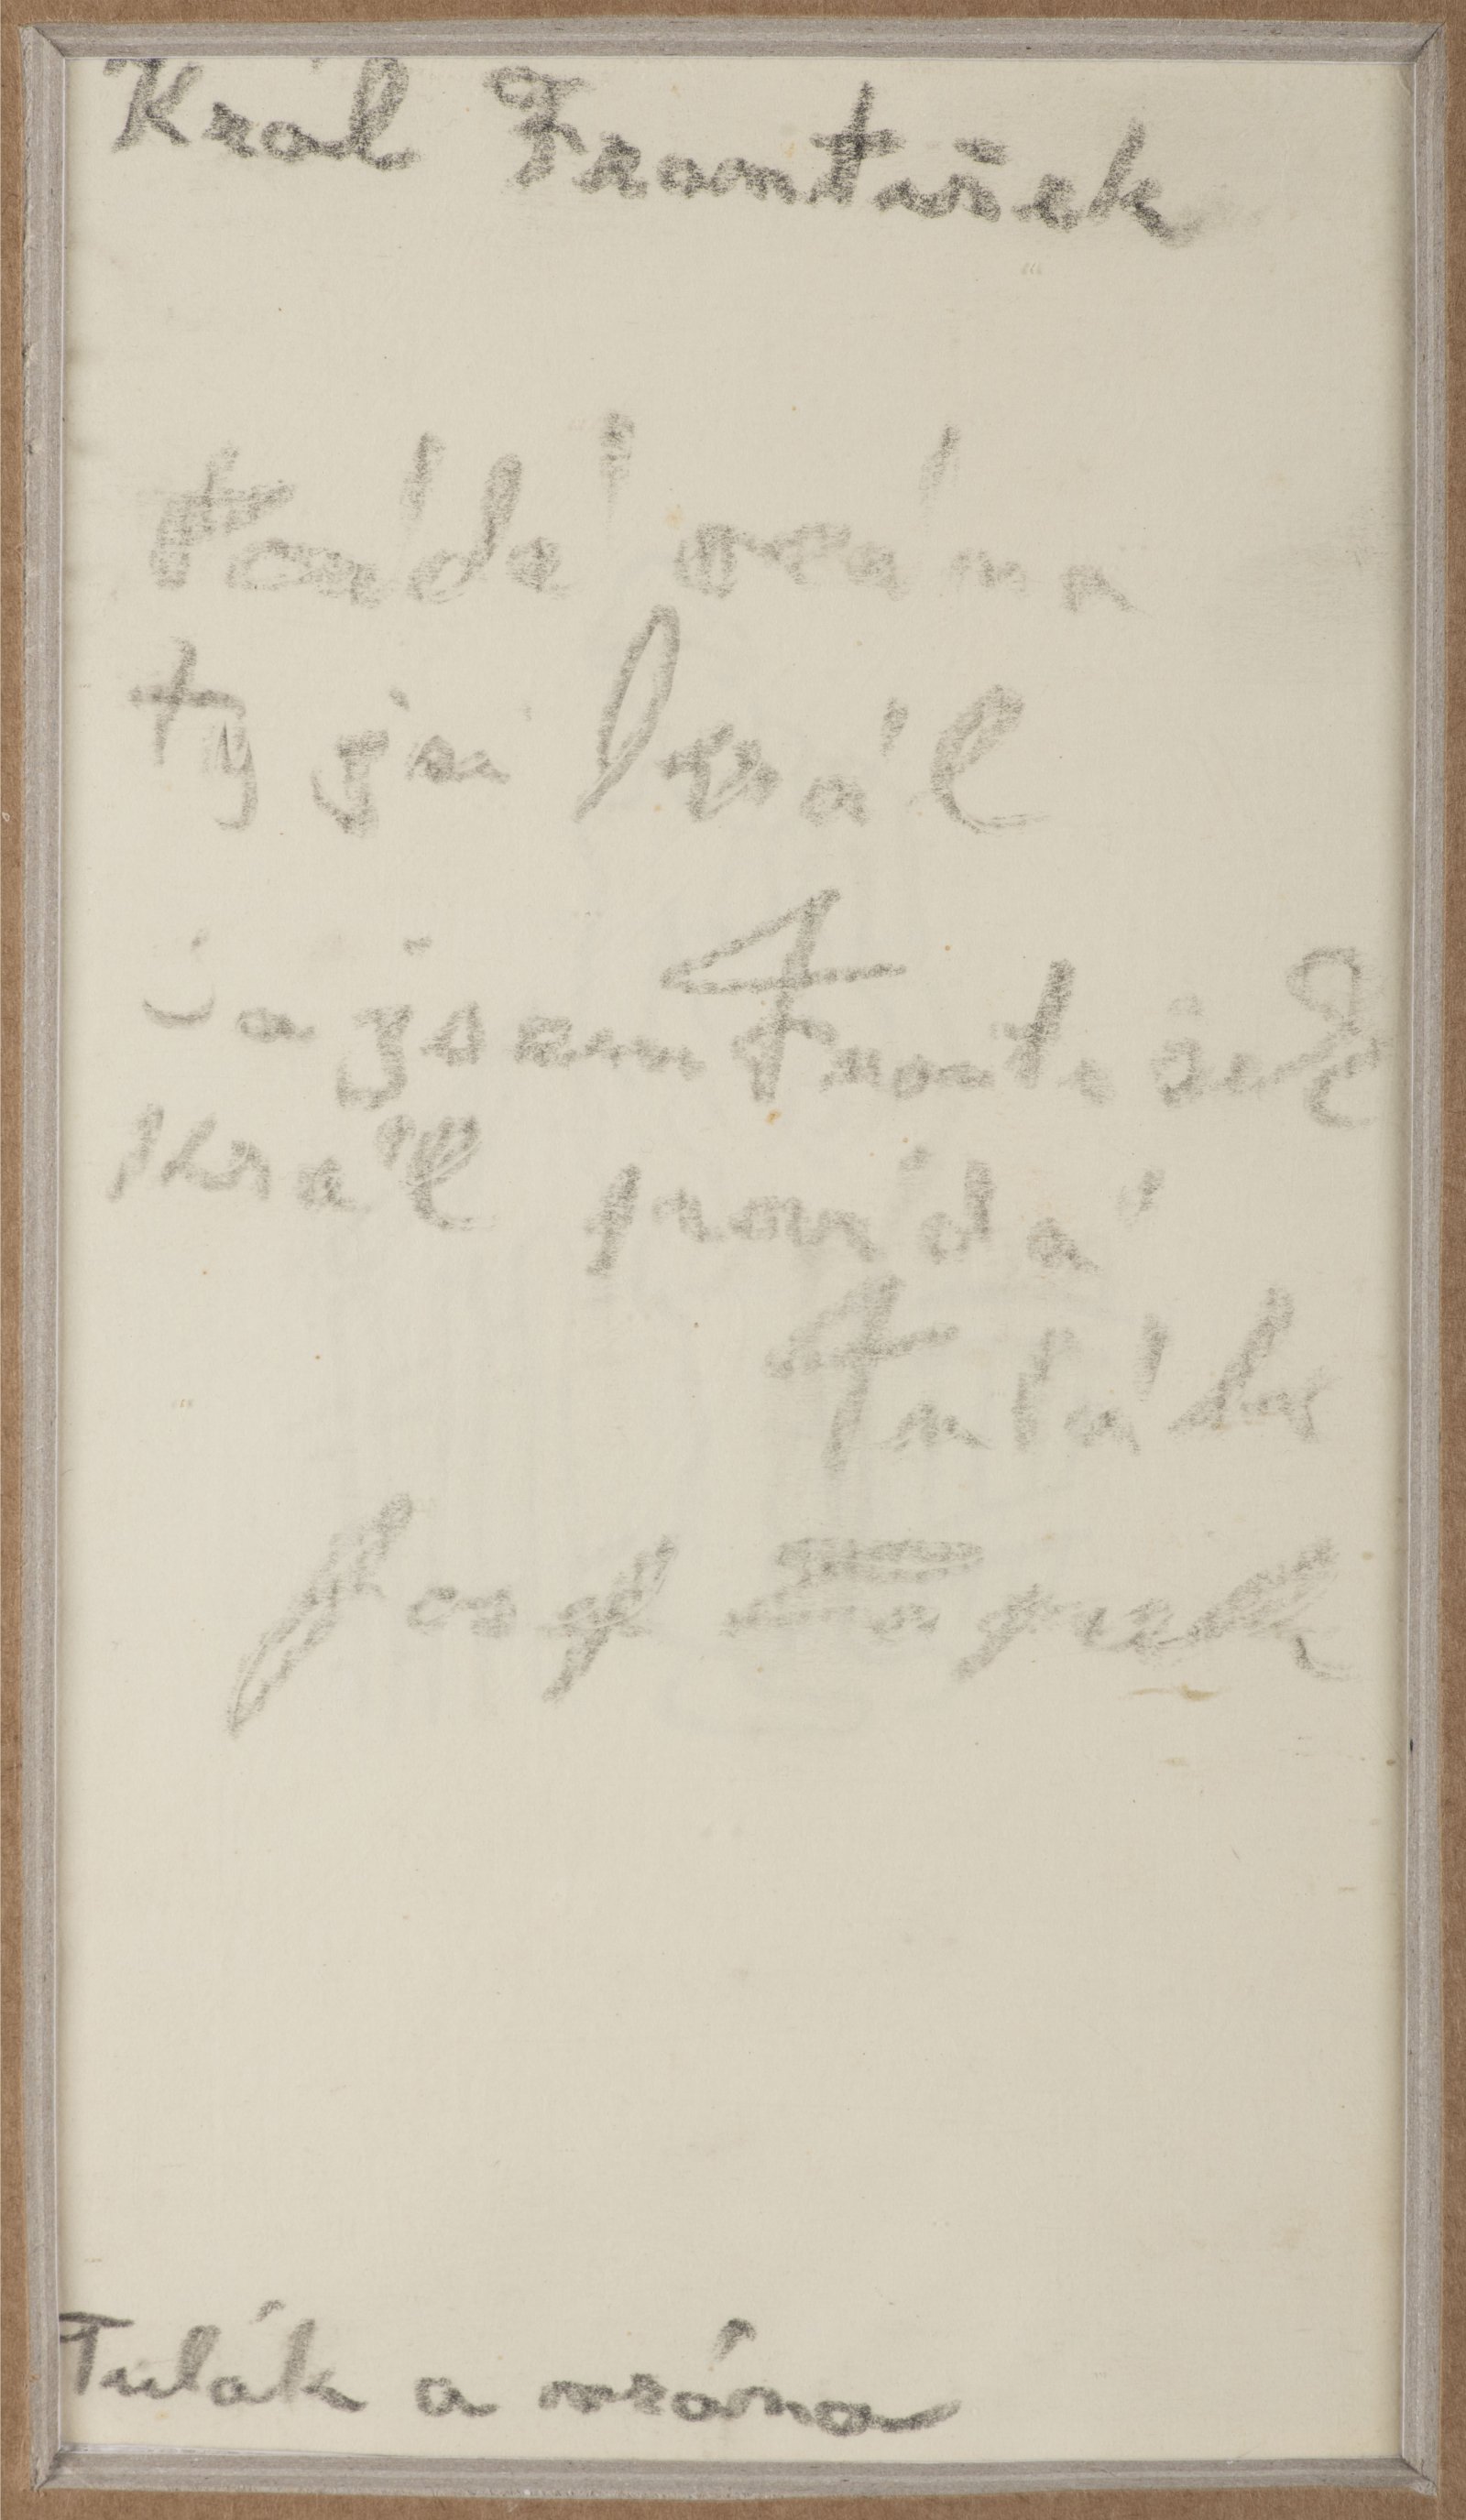 Král František
vrána
ty jsi král
Ja jsem František
Král povídá
Tulák
Josef Čapek
Tulák a vrána